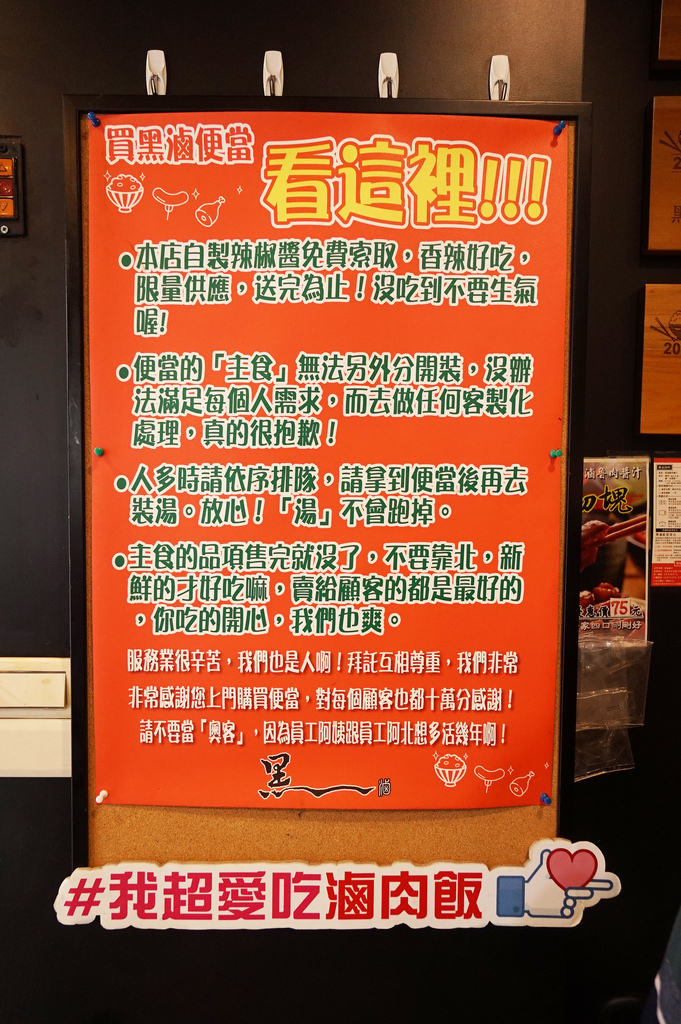 買黑滷便當
看這裡!!!
●本店自製辣椒醬免費索取，香辣好吃，
限量供應，送完為止！沒吃到不要生氣
喔!
●便當的「主食」無法另外分開裝，沒辦
法滿足每個人需求，而去做任何客製化
處理，真的很抱歉！
●人多時請依序排隊，請拿到便當後再去
裝湯。放心！「湯」不會跑掉。
●主食的品項售完就沒了，不要靠北，新
鮮的才好吃嘛，賣給顧客的都是最好的
，你吃的開心，我們也爽。
服務業很辛苦，我們也是人啊！拜託互相尊重，我們非常
非常感謝您上門購買便當，對每個顧客也都十萬分感謝！
請不要當「奧客」，因為員工阿姨跟員工阿北想多活幾年啊！
黑滷
#我超愛吃滷肉飯
滷魯肉醬汁
切塊
惠價75元
家四口剛剛好
20